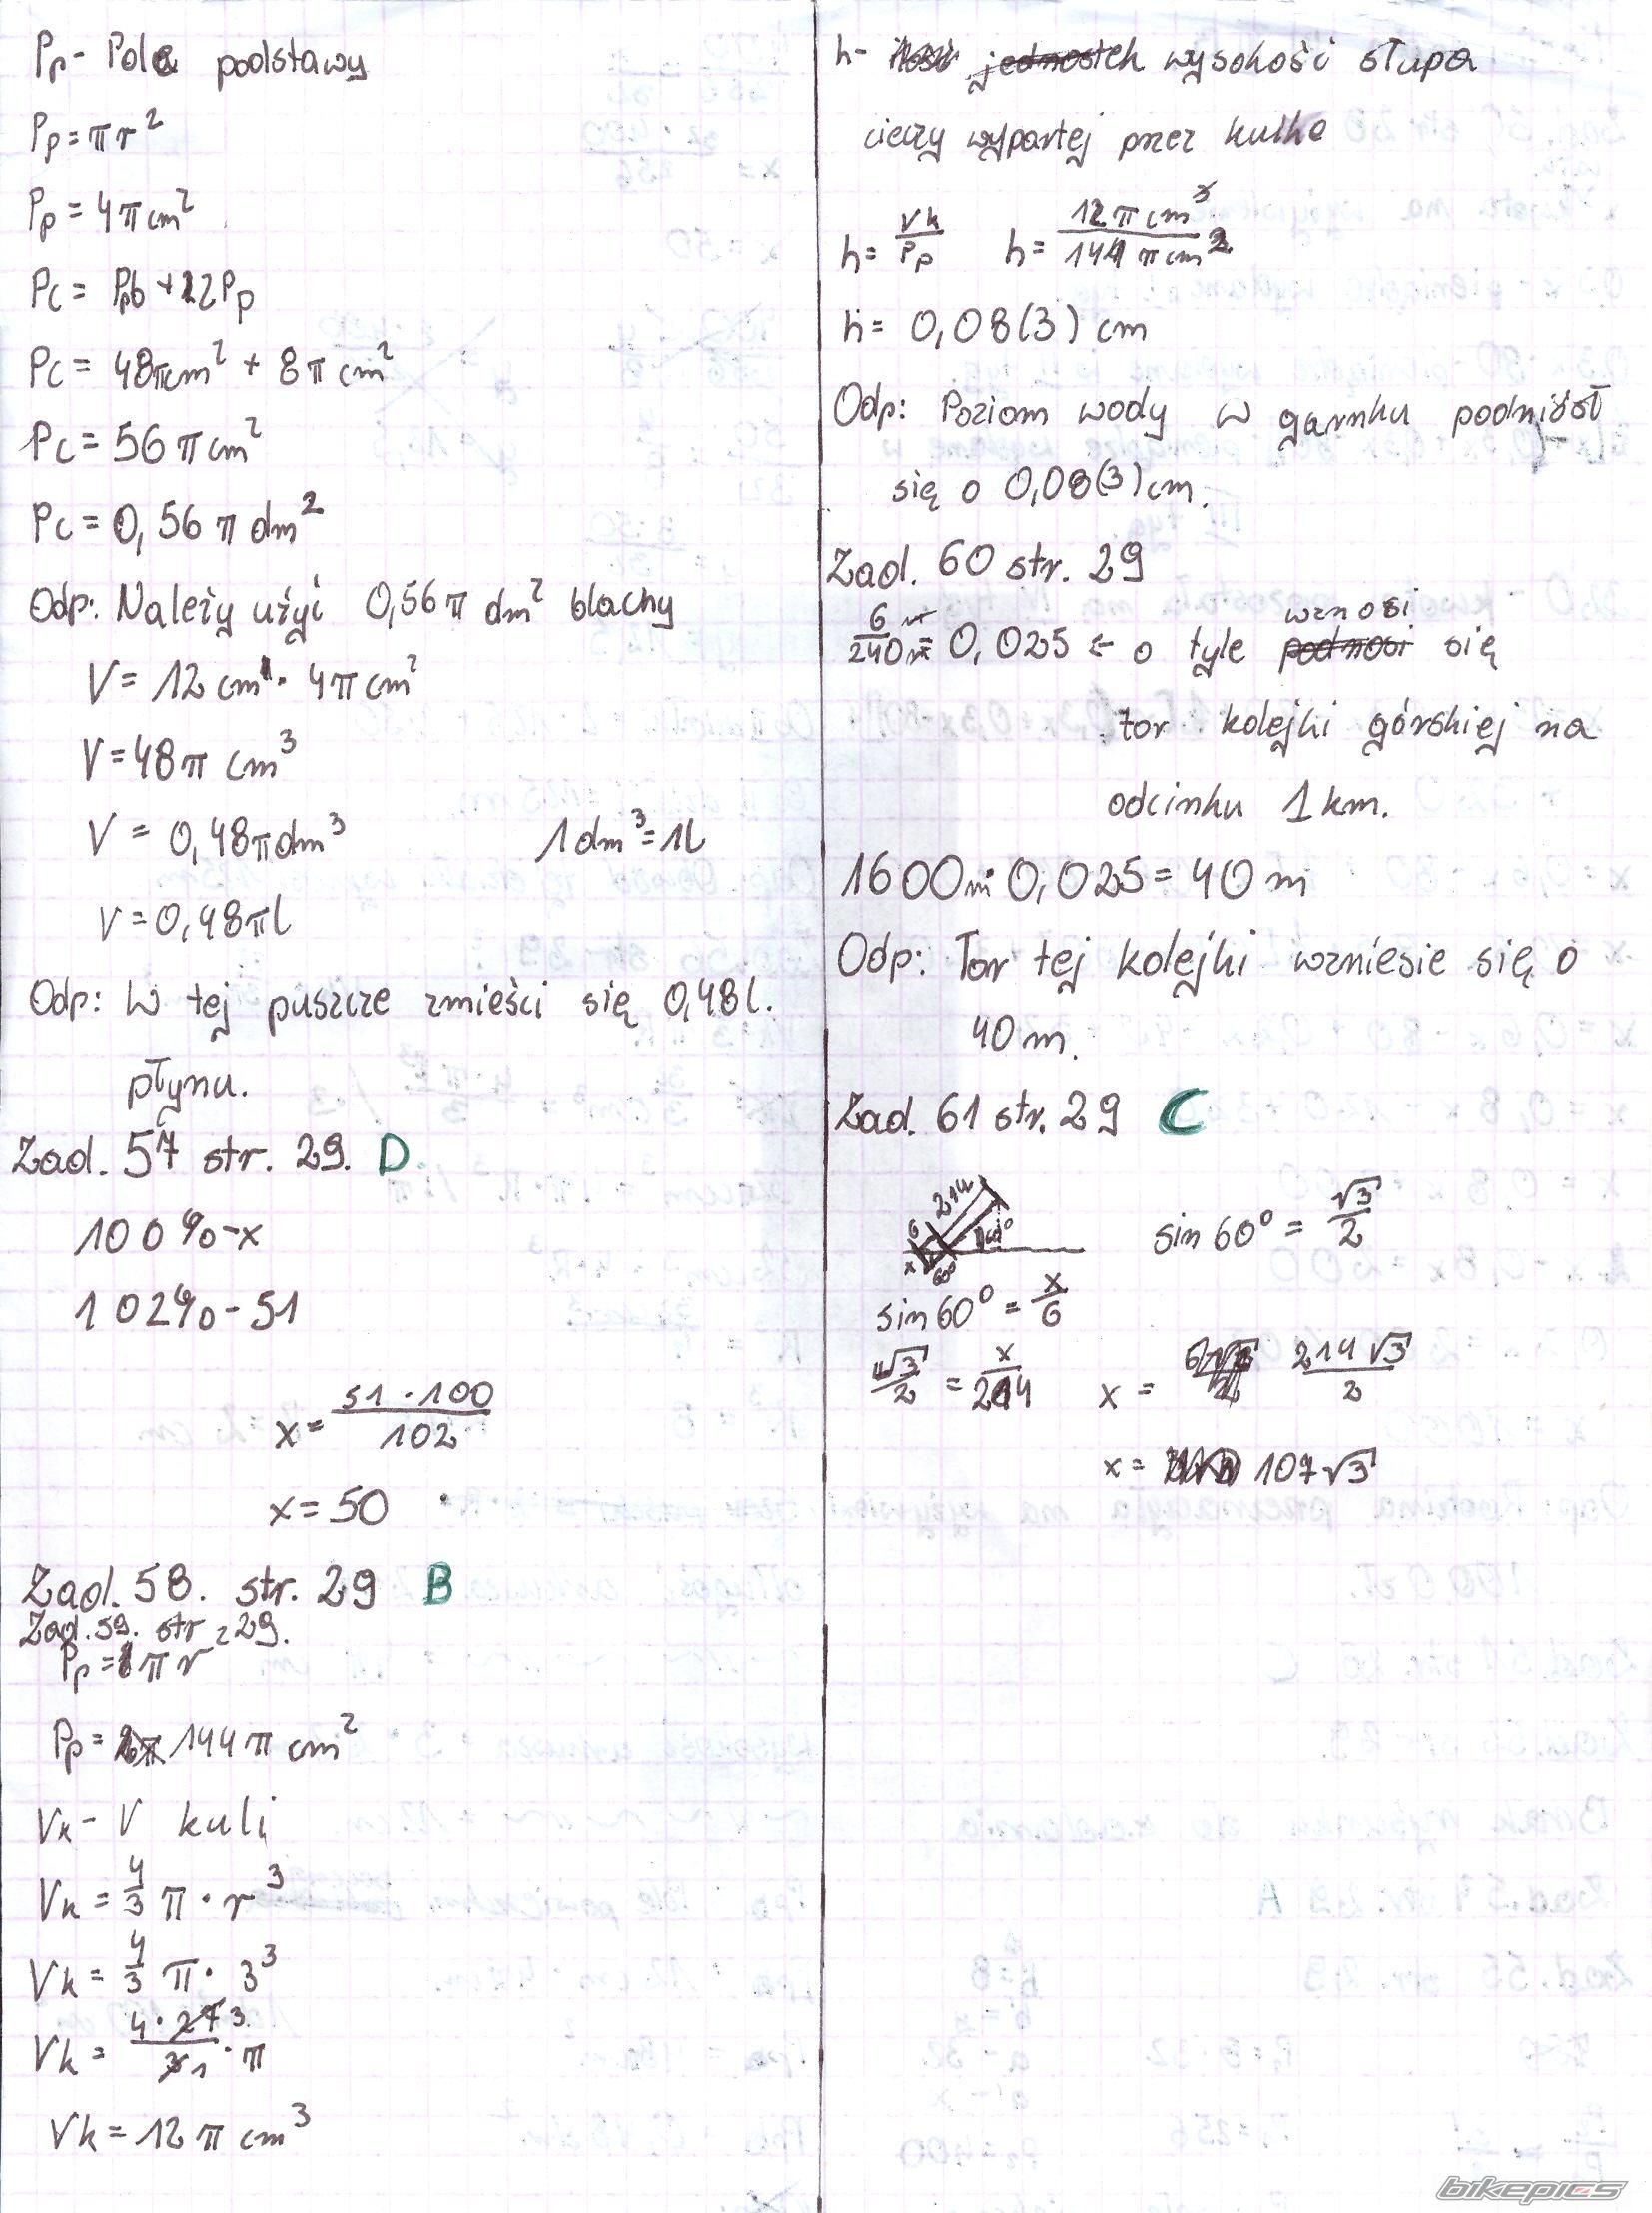 Pp - Pole podstawy
Pp = πr²
Pp = 4π cm²
Pc = Pb + 2Pp
Pc = 48π cm² + 8π cm²
Pc = 56π cm²
Pc = 0,56 π dm²
Odp: Należy użyi 0,56π dm² blachy
V = 12 cm · 4π cm²
V = 48π cm³
V = 0,48π dm³ 1 dm³ = 1l
V = 0,48πl
Odp: W tej puszcze zmieści się 0,48l.
płynu.
Zad. 57 str. 29. D
100% - x
102% - 51
x = 51 · 100 / 102
x = 50
Zad. 58. str. 29 B
Zad. 59. str 29.
Pp = π r
Pp = 144π cm²
Vk - V kuli
Vk = 4/3 π · r³
Vk = 4/3 π · 3³
Vk = 4 · 27 3 / 3 1 · π
Vk = 12π cm³
h - jednostek wysokość słupa
cieczy wypartej przez kulke
h = Vk/Pp h = 12π cm³ / 144 π cm²
h = 0,08(3) cm
Odp: Poziom wody w garnku podniósł
się o 0,08(3) cm.
Zad. 60 str. 29
6m/240m = 0,025 ← o tyle podnosi wznosi się
tor kolejki górskiej na
odcinku 1 km.
1600m · 0,025 = 40 m
Odp: Tor tej kolejki wzniesie się o
40 m.
Zad. 61 str. 29 C
6 214 60°
x 60°
sin 60° = √3/2
sin 60° = x/6
√3/2 = x/214 x = 214√3/2
x = 107√3
bikepics